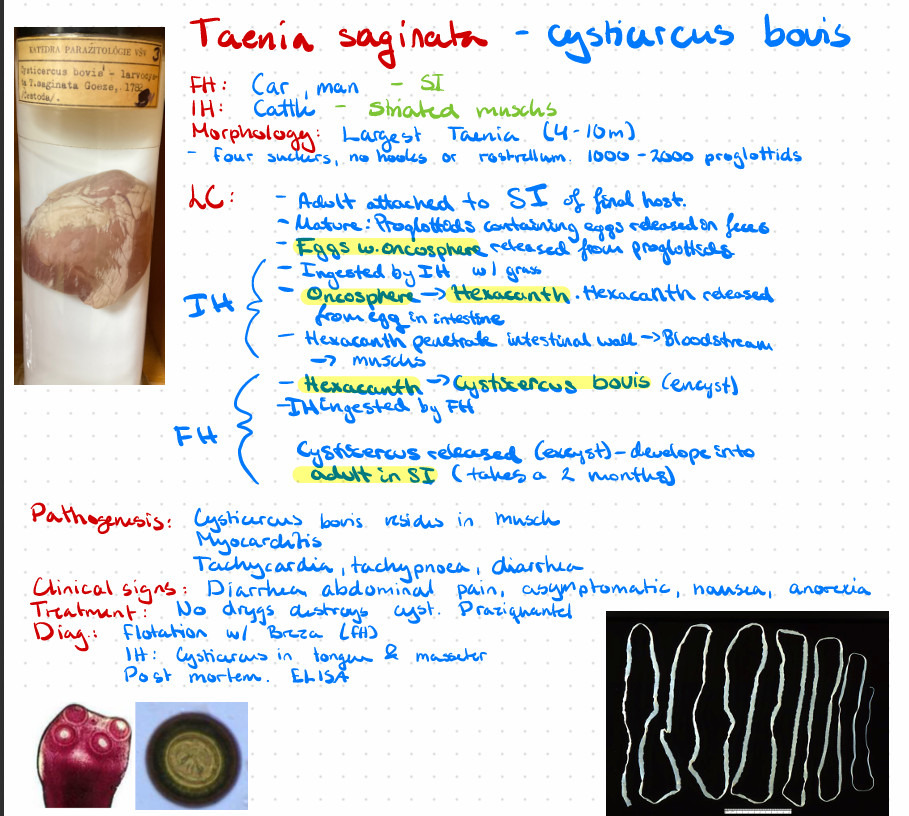 Taenia saginata - cysticarcus bovis
KATEDRA PARAZITOLÓGIE VŠV 3
Cysticercus bovis - larvocys-
ta T.saginata Goeze, 1782
/Cestoda/.
FH: Car, man - SI
IH: Cattle - Striated muscles
Morphology: Largest Taenia (4-10m)
- four suckers, no hooks or rostrellum. 1000-2000 proglottids
LC: - Adult attached to SI of final host.
- Mature: Proglottids containing eggs released in feces
- Eggs w. oncosphere released from proglottids
IH - Ingested by IH w/ grass
- Oncosphere → Hexacanth. Hexacanth released
from egg in intestine
- Hexacanth penetrate intestinal wall → Bloodstream
→ muscles
FH - Hexacanth → Cysticercus bovis (encyst)
- IH ingested by FH
Cysticercus released (excyst) - develope into
adult in SI (takes a 2 months)
Pathogenesis: Cysticarcus bovis resides in muscle
Myocarditis
Tachycardia, tachypnoea, diarrhea
Clinical signs: Diarrhea abdominal pain, asymptomatic, nausea, anorexia
Treatment: No druggs destroys cyst. Praziquantel
Diag.: Flotation w/ Breza (FH)
IH: Cysticarcus in tongue & masseter
Post mortem. ELISA